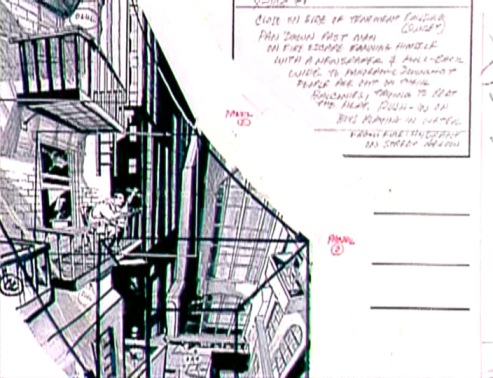 CLOSE ON SIDE OF TENEMENT BUILDING
(SUNSET)
PAN DOWN PAST MAN
ON FIRE ESCAPE FANNING HIMSELF
WITH A NEWSPAPER & PULL-BACK
WIDER TO PANORAMIC DOWNSHOT
PEOPLE ARE OUT ON THEIR
BALCONIES, TRYING TO BEAT
THE HEAT. PUSH-IN ON
BOYS PLAYING IN WATER
FROM FIRE HYDRANT
ON STREET BELOW
PANEL
①
PANEL
②